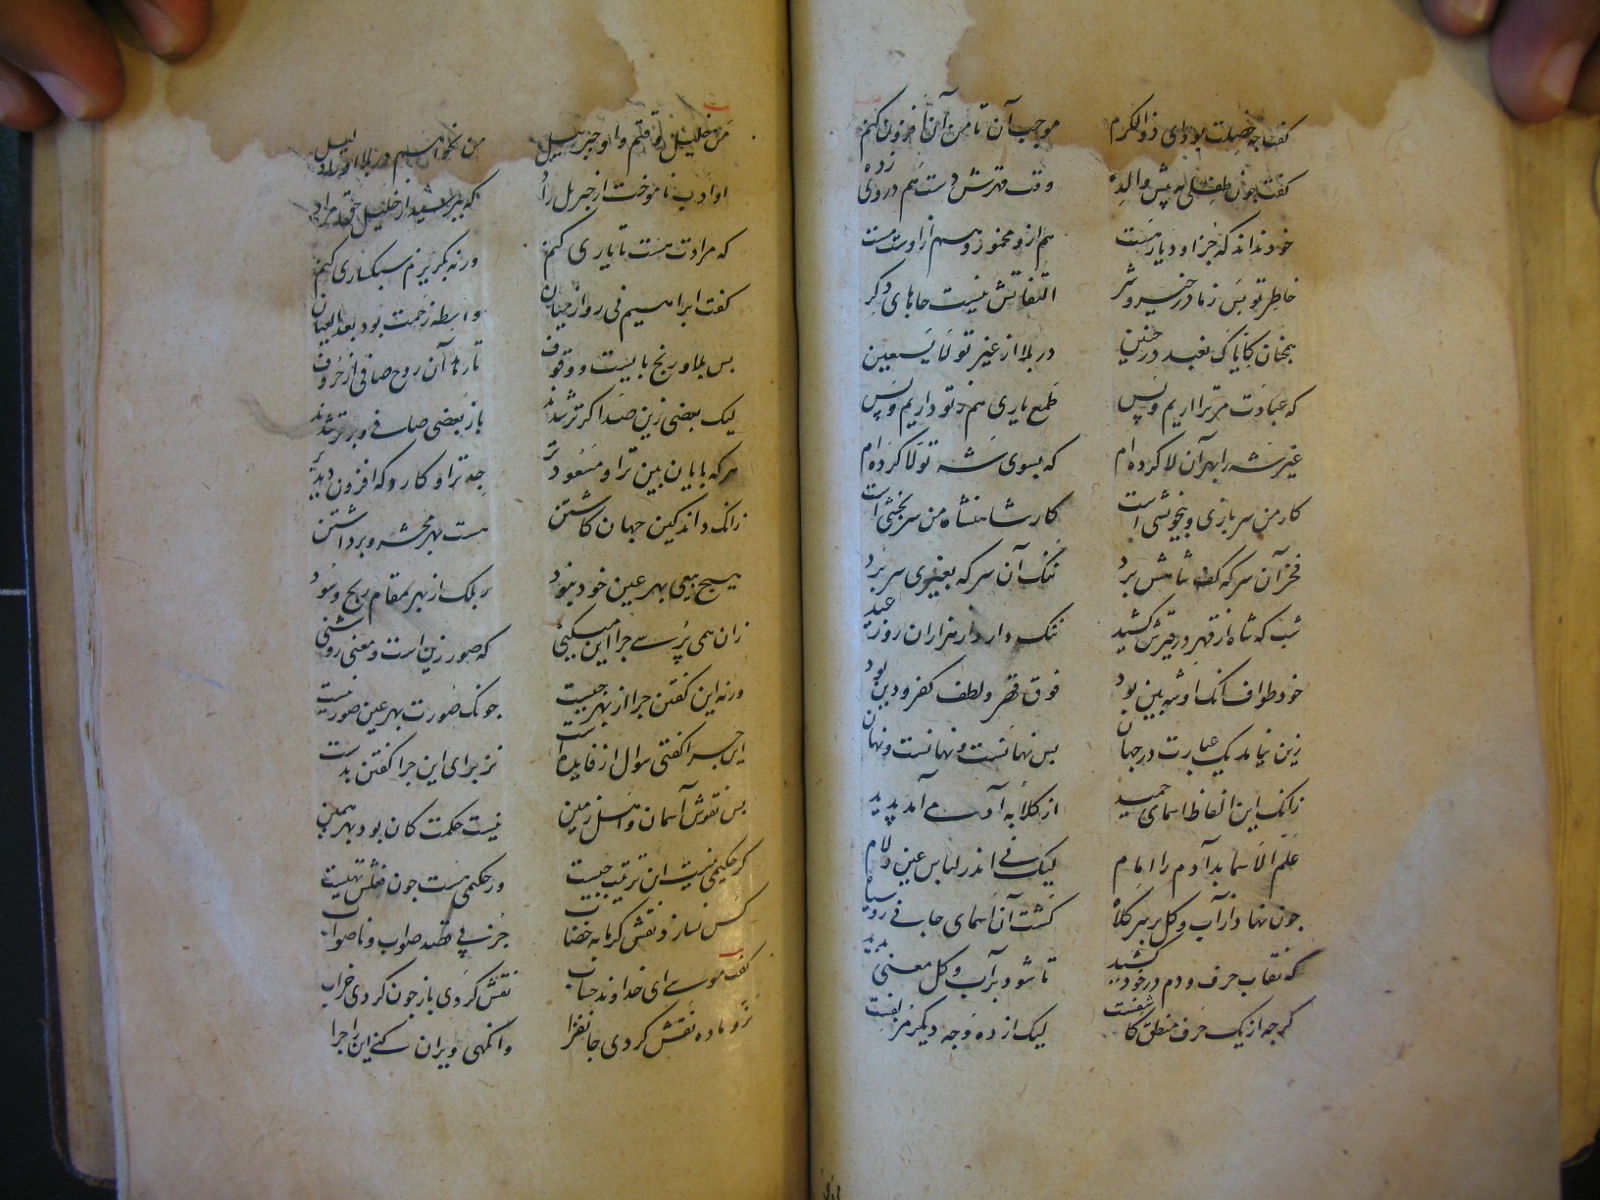 گفت چه خصلت بود ای ذوالکرم موجب آن تا من آن افزون کنم
گفت چون طفلی به پیش والده وقت قهرش دست هم در وی زده
خود نداند که جز او دیار هست هم ازو مخمور و هم از اوست مست
خاطر تو بس ز ما در خیر و شر التفاتش نیست جاهای دگر
همچنان کایاک نعبد در حنین در بلا از غیر تو لا نستعین
که عبادت مر ترا آریم و بس طمع یاری هم ز تو داریم و بس
غیر شه را بهر آن لا کرده ام که بسوی شه تولا کرده ام
کار من سربازی و بیخویشی است کار شاهنشاه من سربخشی است
فخر آن سر که کف شاهش برد ننگ آن سر که بغیری سر برد
شب که شاه از قهر در قیرش کشید ننگ دارد از هزاران روز عید
خود طواف آنک او شه بین بود فوق قهر و لطف کفر و دین بود
زین نیامد یک عبارت در جهان بس نهانست و نهانست و نهان
زانک این الفاظ اسمای حمید از کلابه آدمی آمد پدید
علم الاسما بد آدم را امام لیک نی اندر لباس عین و لام
چون نهاد از آب و گل بر سر کلاه گشت آن اسمای جانی رو سیاه
که نقاب حرف و دم در خود کشید تا شود بر آب و گل معنی پدید
گرچه از یک حرف منطق کاشفست لیک از ده وجه دیگر مکنفست
من خلیل وقتم و او جبرئیل من نخواهم در بلا او را دلیل
او ادب ناموخت از جبریل راد که بپرسید از خلیل حق مراد
که مرادت هست تا یاری کنم ورنه بگریزم سبکساری کنم
گفت ابراهیم نی رو از میان واسطه زحمت بود بعد العیان
بس بلا و رنج بایست و وقوف تا رهد آن روح صافی از حروف
لیک بعضی زین صدا کرتر شدند باز بعضی صافی و برتر شدند
هرکه پایان بین ترا و مسعودتر جدتر او کارد که افزون دید بر
زانک داند کین جهان کاشتن هست بهر محشر و برداشتن
هیچ بیعی بهر عین خود نبود بلک از بهر مقام ربح و سود
زان همی پرسی چرا این میکنی که صور زیت است و معنی روشنی
ورنه این گفتن چرا از بهر چیست چونک صورت بهر عین صورتیست
این چرا گفتن سوال از فایده است جز برای این چرا گفتن بدست
پس نقوش آسمان و اهل زمین نیست حکمت کان بود بهر همین
گر حکیمی نیست این ترتیب چیست ور حکیمی هست چون فعلش تهیست
کس نسازد نقش گرمابه خضاب جز پی قصد صواب و ناصواب
گفت موسی ای خداوند حساب نقش کردی باز چون کردی خراب
نر و ماده نقش کردی جانفزا وانگهی ویران کنی این را چرا